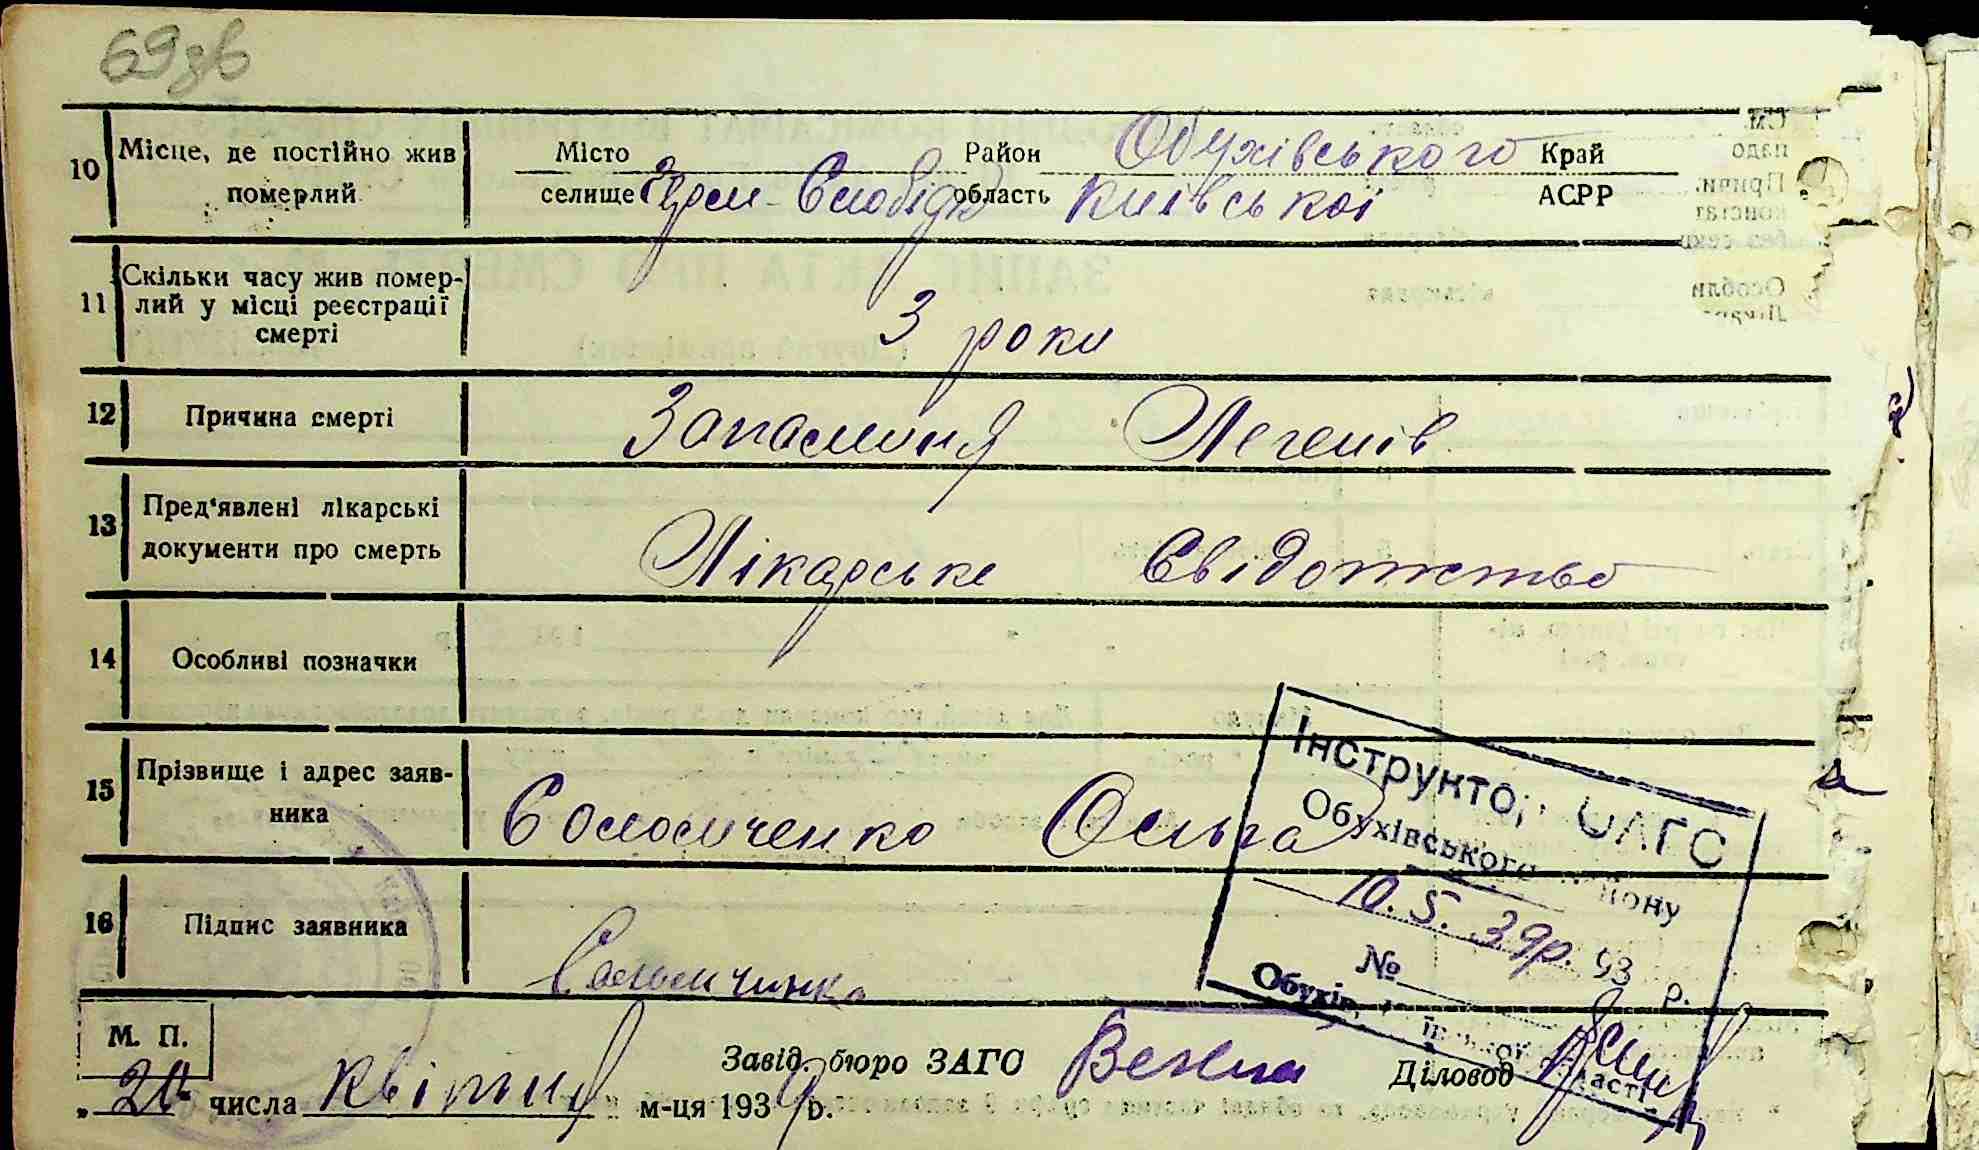 69зв
10 Місце, де постійно жив померлий
Місто Район Обухівського Край
селище область Київської АСРР
11 Скільки часу жив помер-
лий у місці реєстрації
смерті
3 роки
12 Причина смерті Запаленя Легенів
13 Пред'явлені лікарські
документи про смерть
Лікарське Свідотство
14 Особливі позначки
15 Прізвище і адрес заяв-
ника
Соломченко Ольга
16 Підпис заявника
Інструктор ЗАГС
Обухівського району
10.5.39р. 193 р.
№
М. П.
Завід. бюро ЗАГС Діловод
числа квітня м-ця 1939р.